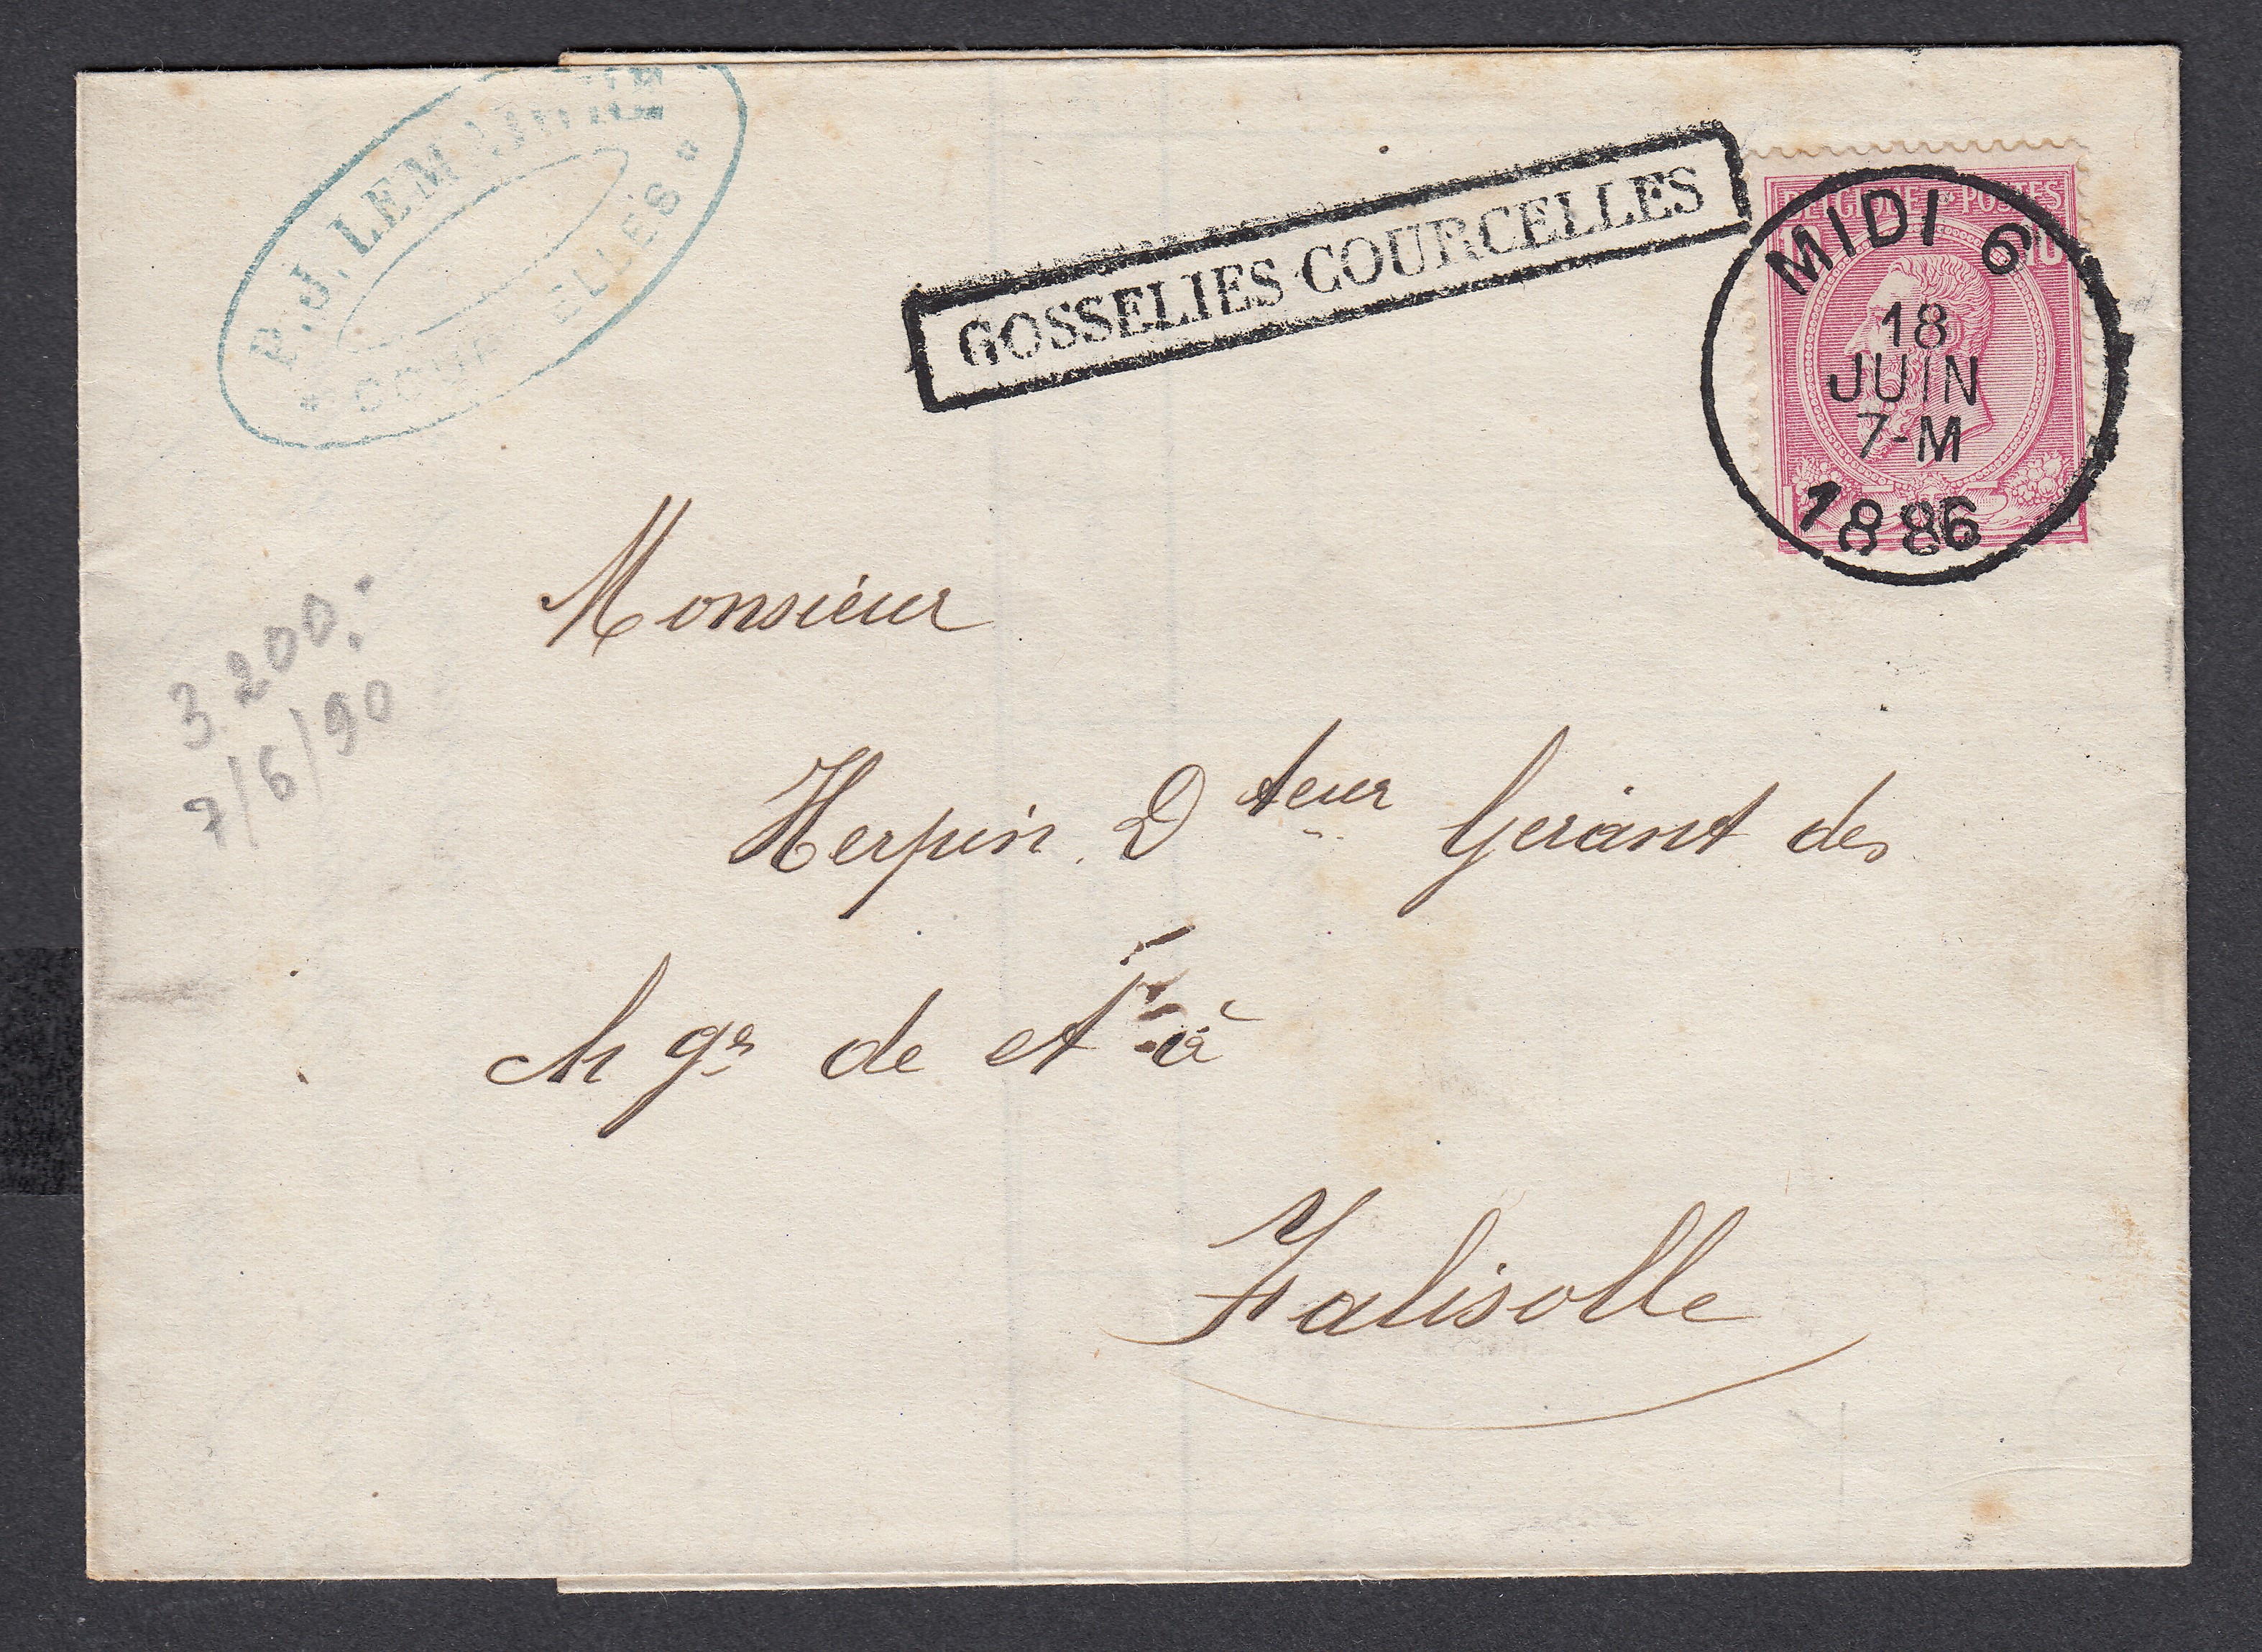 P. J. LEMAIRE
COURCELLES
GOSSELIES COURCELLES
BELGIQUE POSTES
10
MIDI 6
18
JUIN
7-M
1886
3.200.-
7/6/90
Monsieur
Herpin Dteur Gerant des
Ch grs de et à
Falisolle